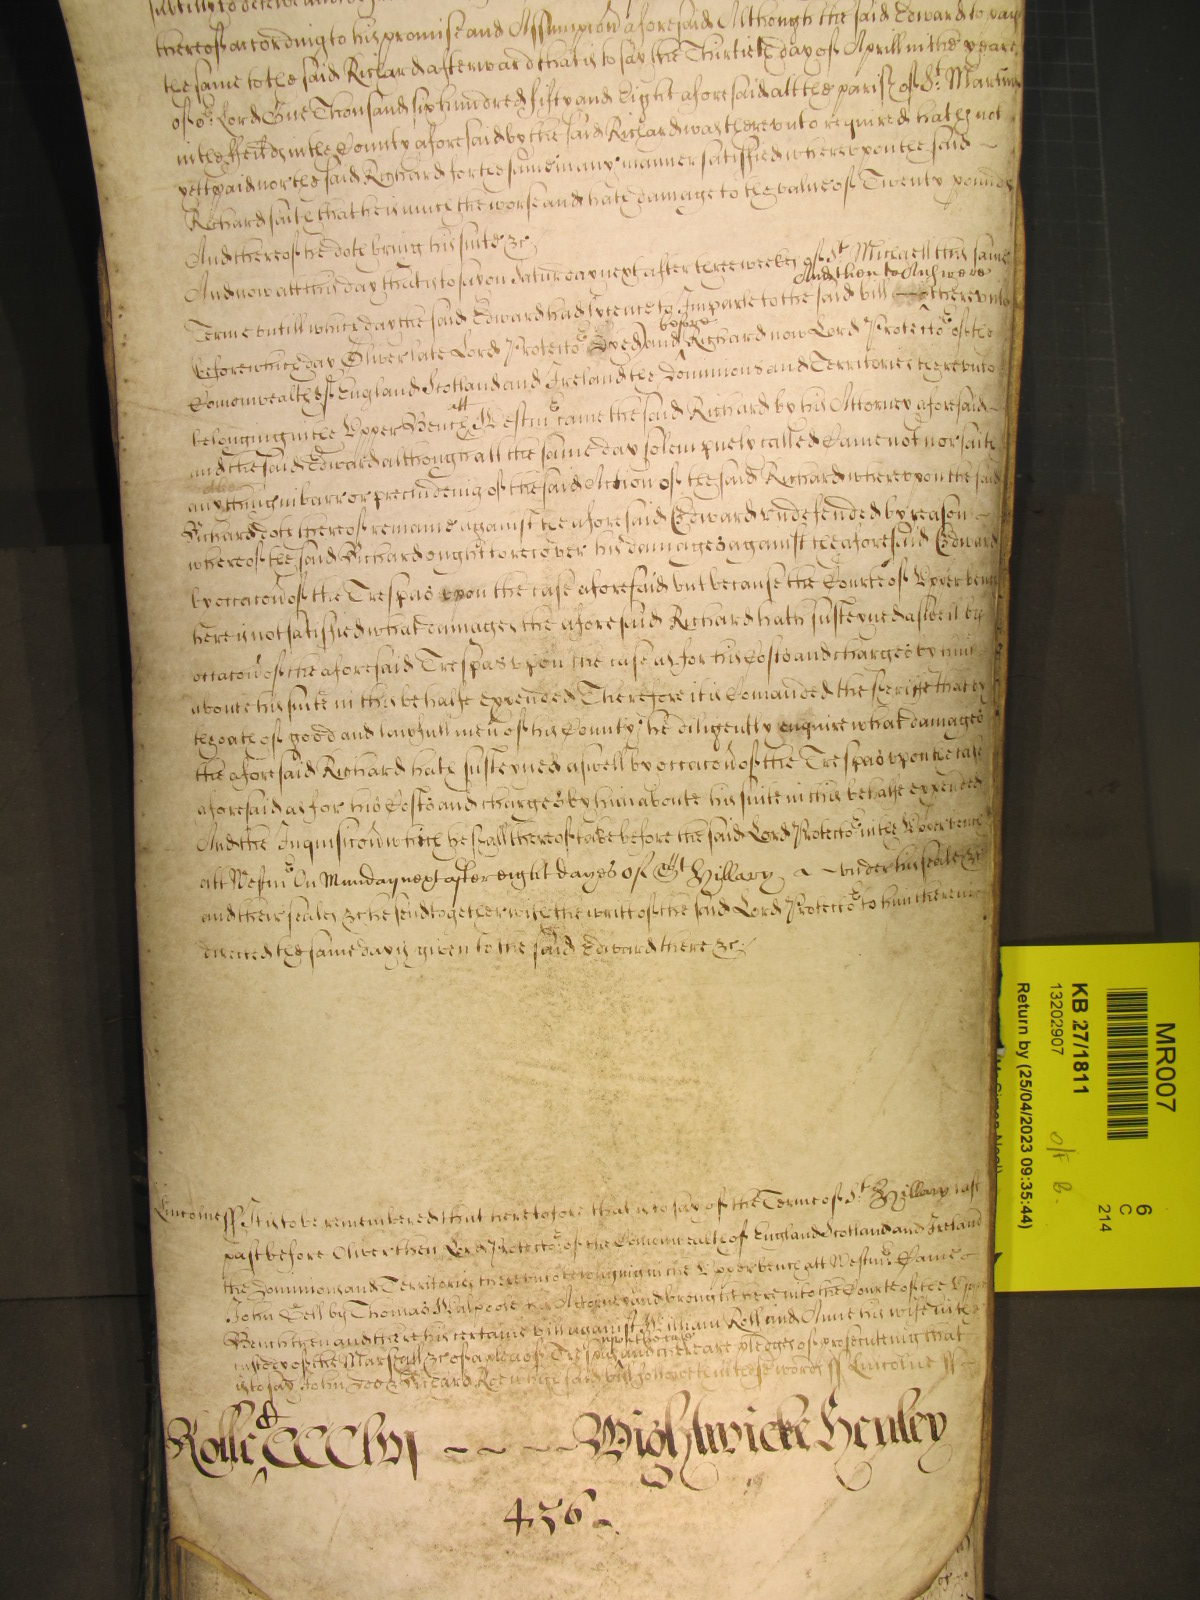 thereof according to his promise and Assumpcon aforesaid Although the said Edward to pay
the same to the said Richard afterward that is to say the Thirtieth day of Aprill in the yeare
of or Lord One Thousand six hundred fifty and Eight aforesaid att the parish of St Martin
in the ffeilds in the County aforesaid by the said Richard was therevnto required hath not
yett paid nor the said Richard for the same in any manner satisfied wherevpon the said
Richard saith that he is much the worse and hath damage to the value of Twenty pounds
And thereof he doth bring his suite &c
And now att this day that is to say on Saturday next after three weekes of St Michaell this same
Terme vntill which day the said Edward had lycence to Imparle to the said bill And then to Answere therevnto
before which day Oliver late Lord Protector dyed and before Richard now Lord Protector of the
Comonwealth of England Scotland and Ireland the Dominions and Territories therevnto
belonging in the Vpper Bench att Westmr came the said Richard by his Attorney aforesaid
and the said Edward although att the same day solempnely called Came not nor saith
any thing in barr or precludeing of the said Action of the said Richard wherevpon the said
Richard doth thereof remaine against the aforesaid Edward vndefended by reason
whereof the said Richard ought to recover his damages against the aforesaid Edward
by occacon of the Trespas vpon the case aforesaid but because the Courte of Vpper bench
here is not satisfied what damages the aforesaid Richard hath susteyned aswell by
occacon of the aforesaid Trespas vpon the case as for his Costs and charges by him
aboute his suite in this behalfe expended Therefore it is Comanded the sherife that by
the oath of good and lawfull men of his County he diligently enquire what damages
the aforesaid Richard hath susteyned aswell by occacon of the Trespas vpon the case
aforesaid as for his Costs and charges by him aboute his suite in this behalfe expended
And the Inquisicon which he shall thereof take before the said Lord Protector in the Vpper bench
att Westmr On Munday next after eight dayes of St Hillary vnder his seale &c
and their seales &c he send together with the writt of the said Lord Protector to him therevnto
directed the same day is given to the said Edward there &c
Lincolne ss It is to be remembered that heretofore that is to say of the Terme of St Hillary last
past before Oliver then Lord Protector of the Comonwealth of England Scotland and Ireland
the Dominions and Territories therevnto belonging in the Vpper bench att Westmr Came
John Bell by Thomas Walpoole his Attorney and brought here into the Courte of the Vpper
Bench then and there his certaine bill against William Roll and Anne his wife in the
custody of the Marshall &c of a plea of Trespas vpon the case and there are pledges of prosecuteing that
is to say John Doe & Richard Roe which said bill followeth in these words ss Lincolne ss
Rolle CCCClvj Wightwicke Henley
456
MR007
KB 27/1811
13202907
Return by (25/04/2023 09:35:44)
6
C
214